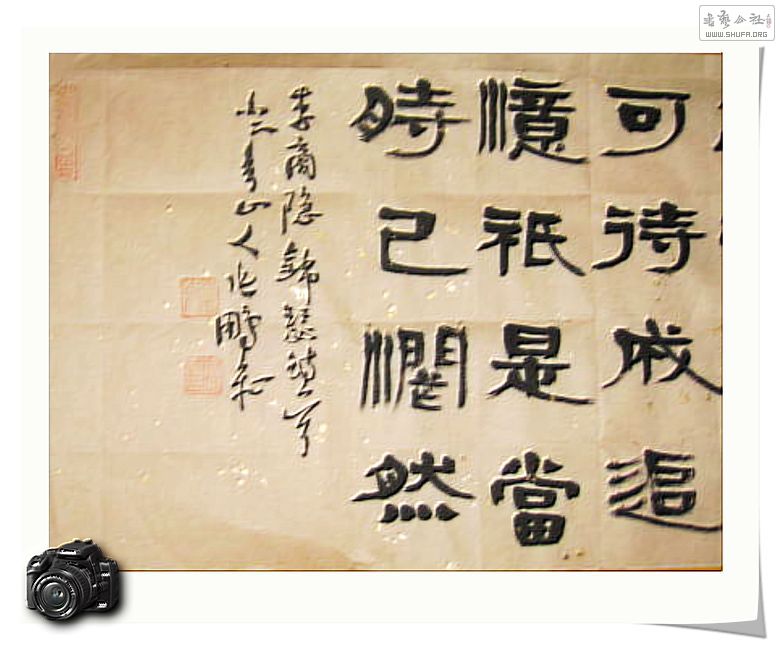 書藝公社
WWW.SHUFA.ORG
可待成追
憶祇是當
時已惘然
李商隐錦瑟
山人 鵬